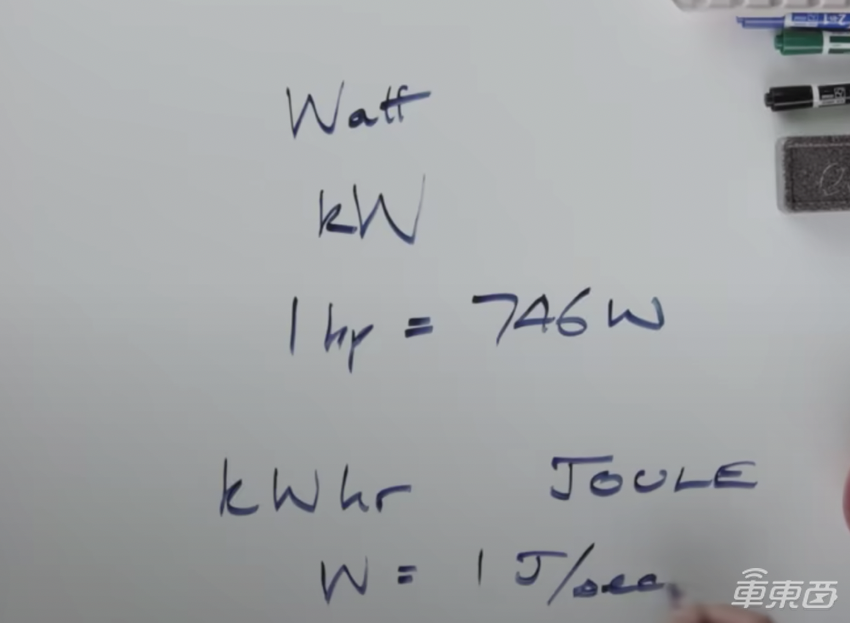 Watt
kW
1 hp = 746 W
kWhr JOULE
W = 1 J/sec
車東西